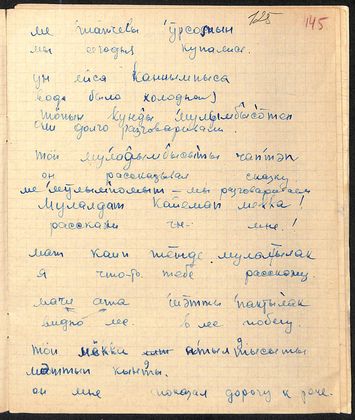 125 145
ме тапчевы ӱрсопын
мы сегодня купались.
ун ейса каннымпыса
вода была холодная)
тӧпын кунды мулымбысӧтет
они долго разговаривали.
той муладымбысыты чаптэп
он рассказывал сказку.
ме мулымполмыт – мы разговариваем
Мулалдат кайемат мекка!
расскажи чт- мне!
мат каип тӓнде мулатылак
я что-то тебе расскажу.
мачи ата матты пактылак
видно лес. в лес побегу.
той мӓкки атылтысыты
мӓттып кынты.
он мне показал дорогу к реке.